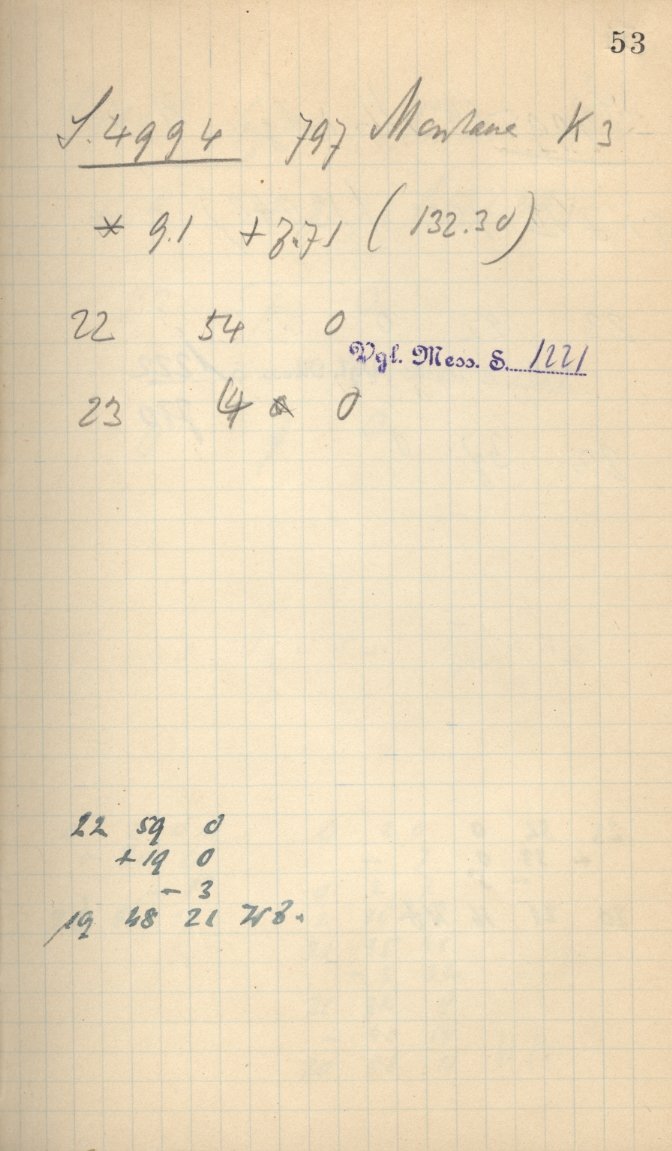 53
S. 4994 797 Montana K 3
* 9.1 + 3.71 ( 132.30 )
22 54 0
Vgl. Mess. S. 1221
23 4 0
22 59 0
+19 0
- 3
19 48 21